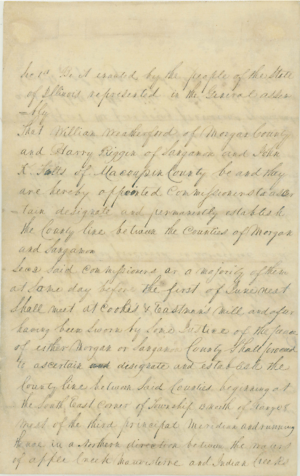 Sec 1st Be it enacted by the people of the State
of Illinois represented in the General assem
-bly
That William Weatherford of Morgan County
and Harry Riggin of Sangamon and John
R. of Macoupin County be and they
are hereby appointed Commissioners to ascer
-tain designate and permanently establish
the County line between the Counties of Morgan
and Sangamon
Sec 2 Said Commissioners or a majority of them
at Some day before the first of June next
Shall meet at mill and after
having been Sworn by Some Justice of the peace
of either Morgan or Sangamon County Shall proceed
to ascertain and designate and establish the
County line between Said Counties, beginning at
the South East Corner of Township North of range
West of the third principal Meridian and running
in a Northern direction between the waters
of apple Creek and Indian Creeks